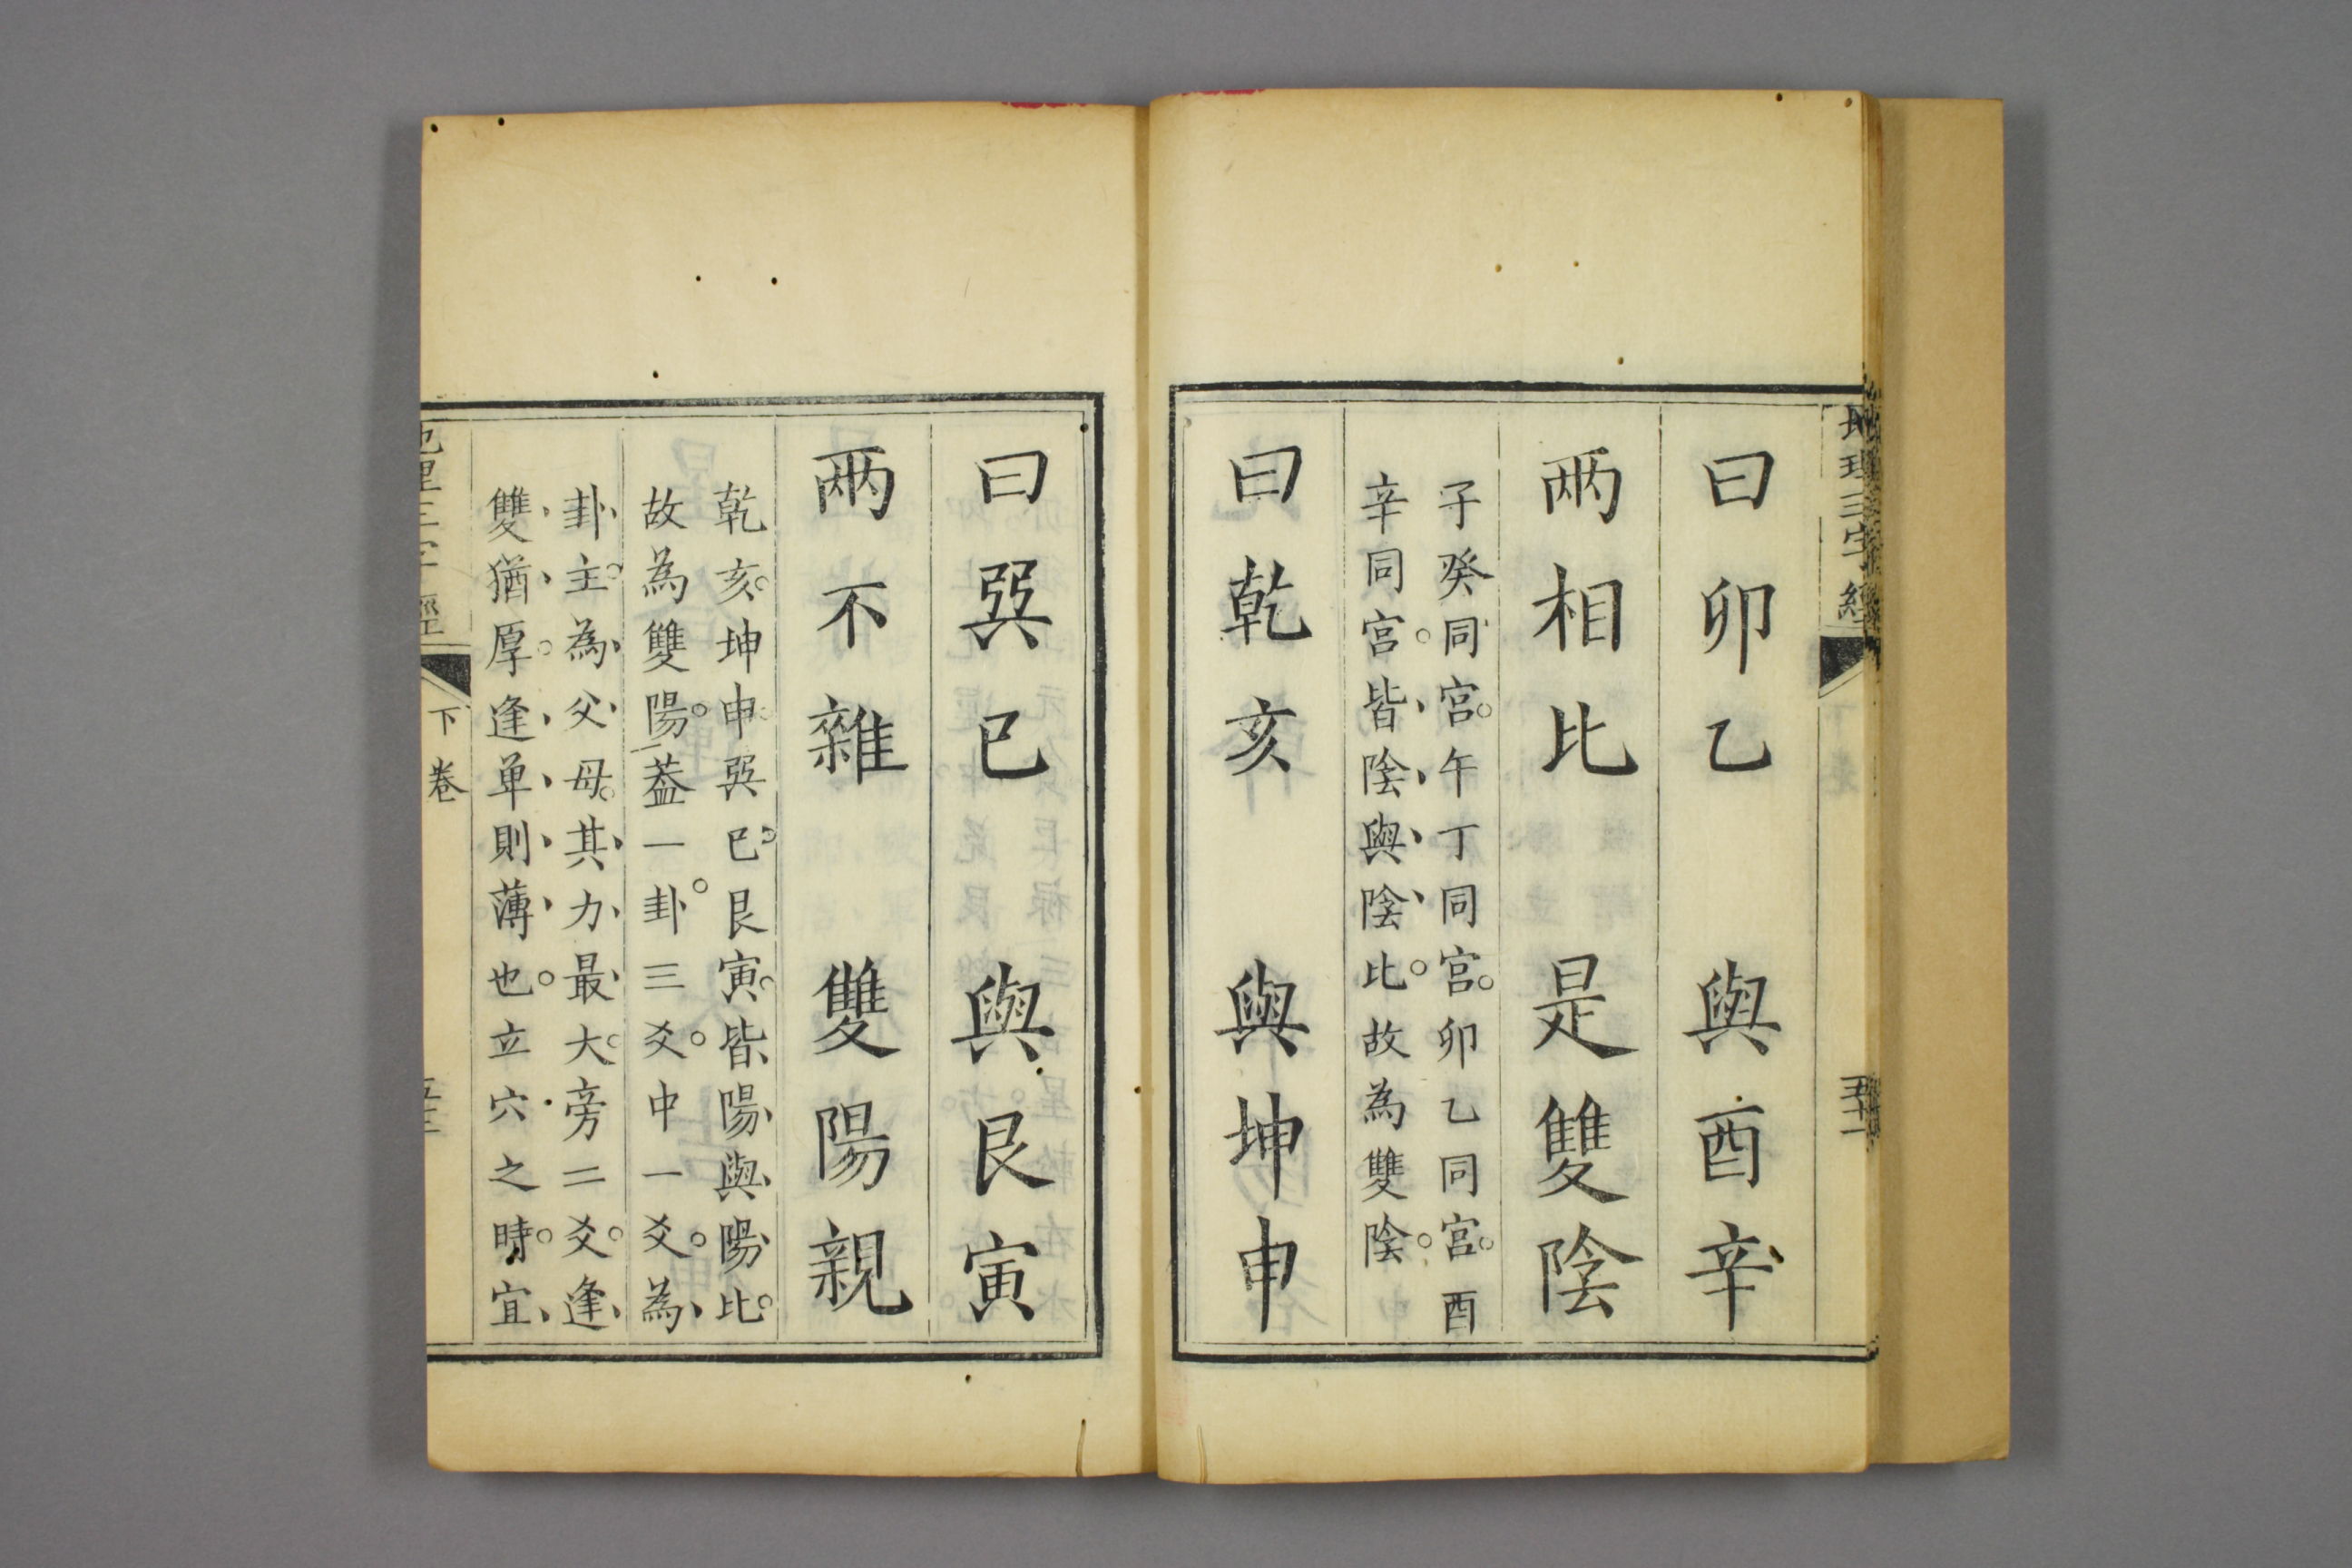 地理三字經
五十一
曰卯乙　與酉辛
兩相比　是雙陰
子癸同宫。午丁同宫。卯乙同宫。酉
辛同宫。皆陰與陰比。故為雙陰。
曰乾亥　與坤申
曰巽巳　與艮寅
兩不雜　雙陽親
乾亥。坤申。巽巳。艮寅。皆陽與陽比。
故為雙陽。葢一卦三爻。中一爻。為
卦主。為父母。其力最大。旁二爻。逢
雙猶厚。逢单則薄也。立穴之時。宜
下卷